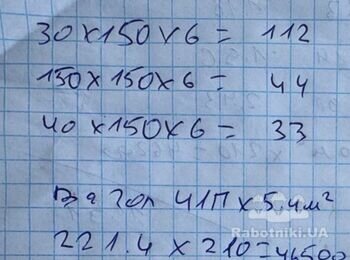 30x150x6 = 112
150x150x6 = 44
40x150x6 = 33
41П x 5.4м²
221.4 x 210 = 46500
Rabotniki.UA